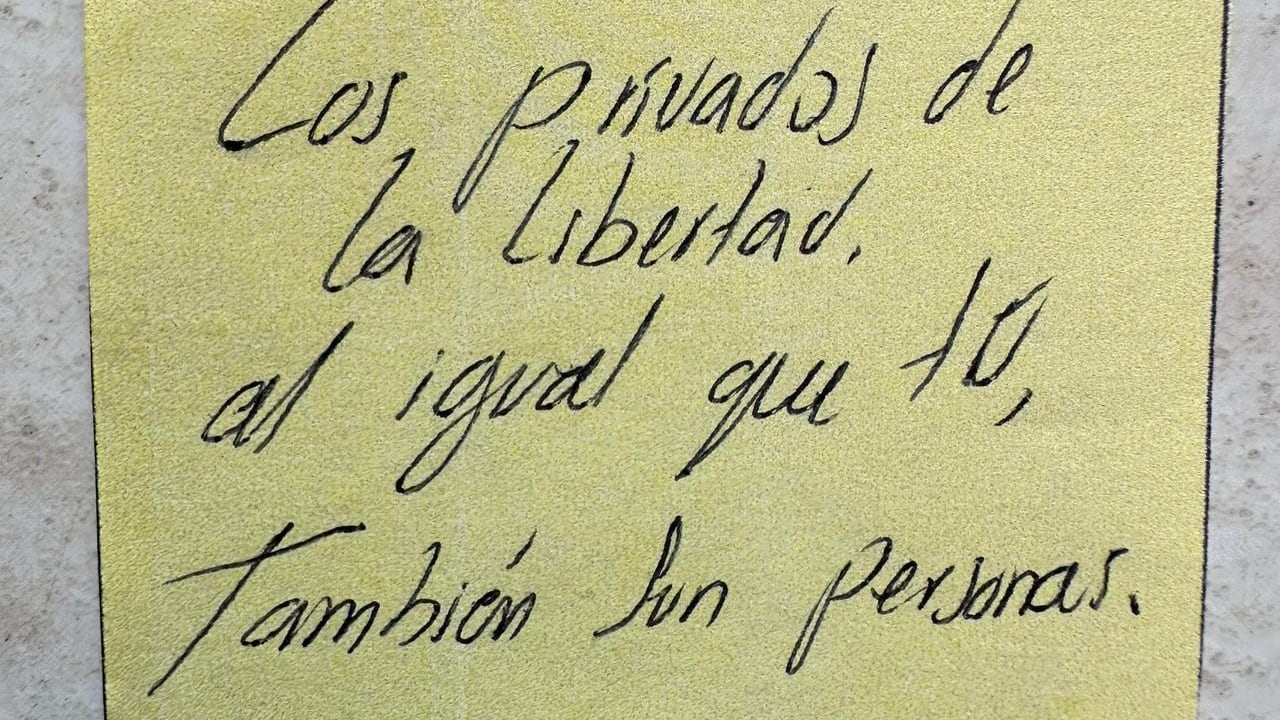 Los privados de
la libertad.
al igual que tú,
También son personas.